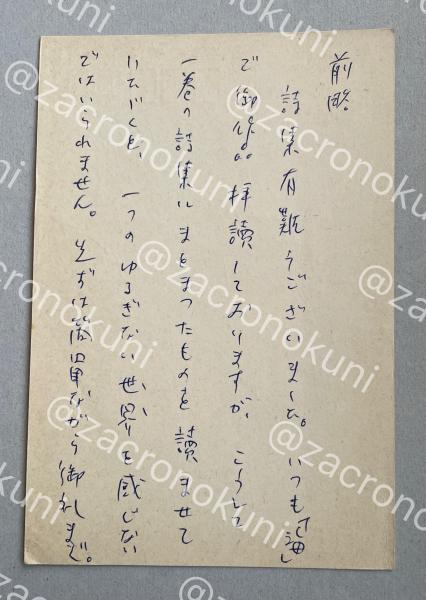 前略
詩集有難うございました。いつも「論」
で御作品拝讀しておりますが、こうして
一巻の詩集にまとまつたものを讀ませて
いただくと、一つのゆるぎない世界を感じない
ではいられません。先ずは簡単ながら御礼まで。
@zacronokuni
@zacronokuni
@zacronokuni
@zacronokuni
@zacronokuni
@zacronokuni